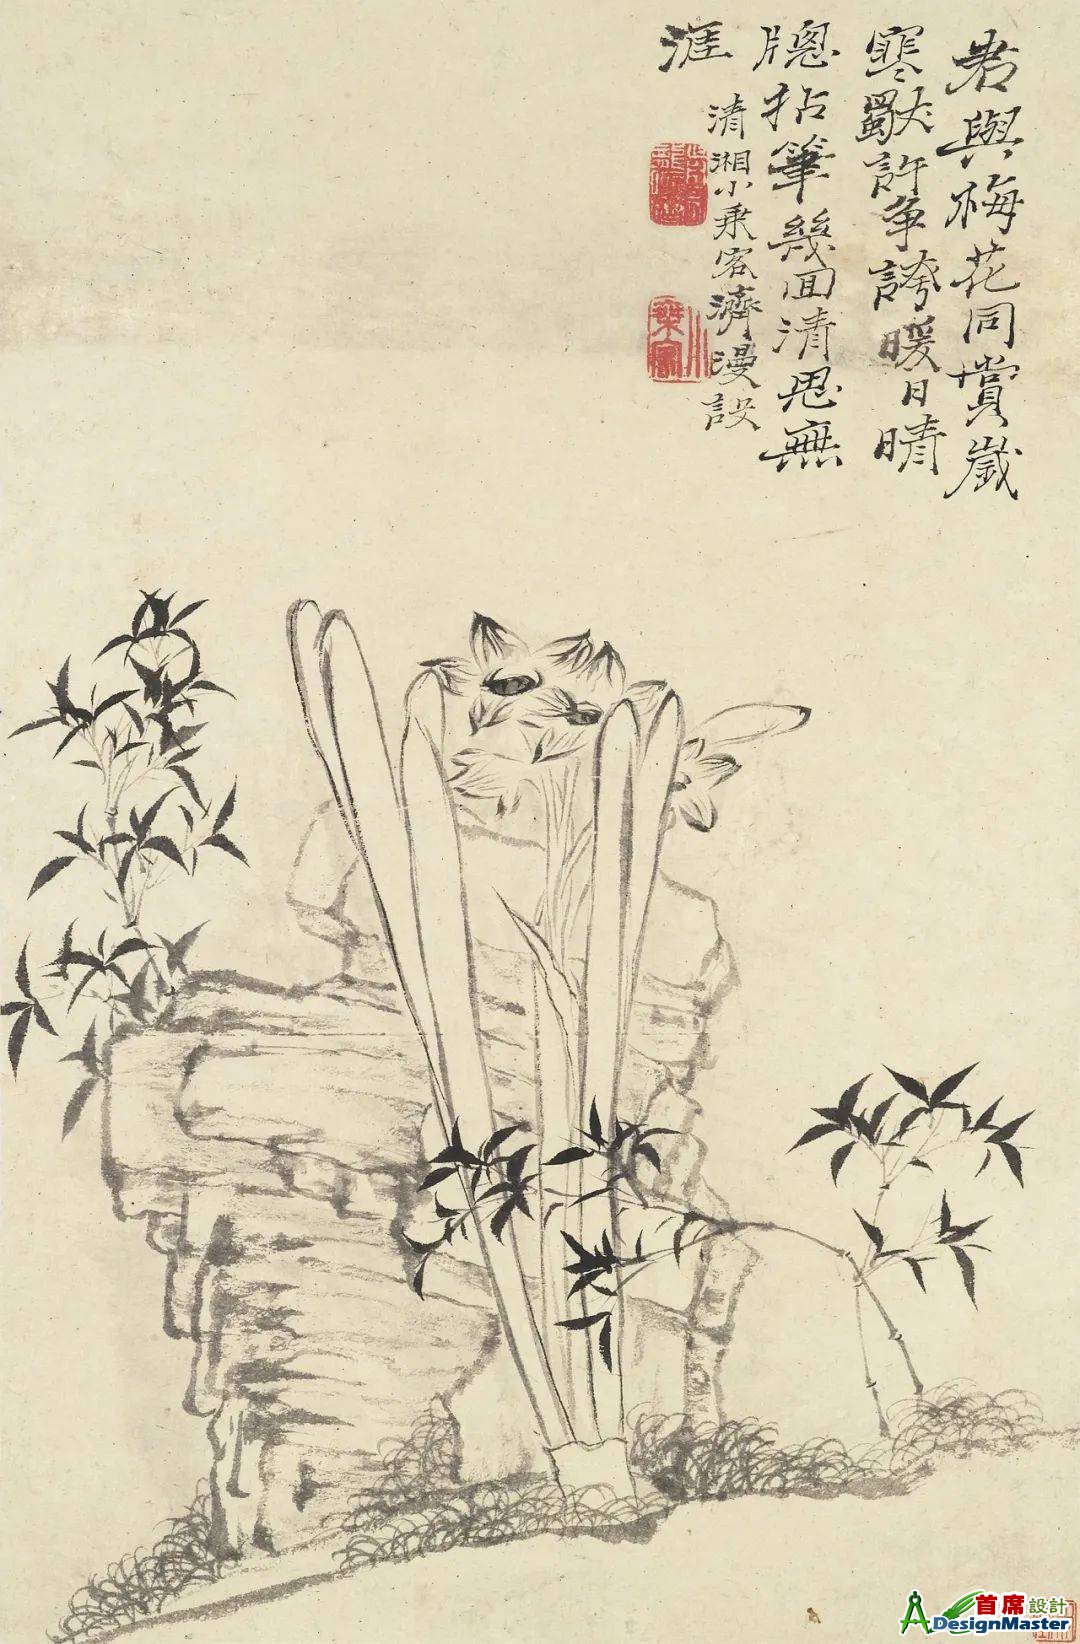 君與梅花同賞歲
寒獨許爭誇暖日晴
牕拈筆幾回清思無
涯
清湘小乘客濟漫設
小乘客
首席設計
DesignMaster